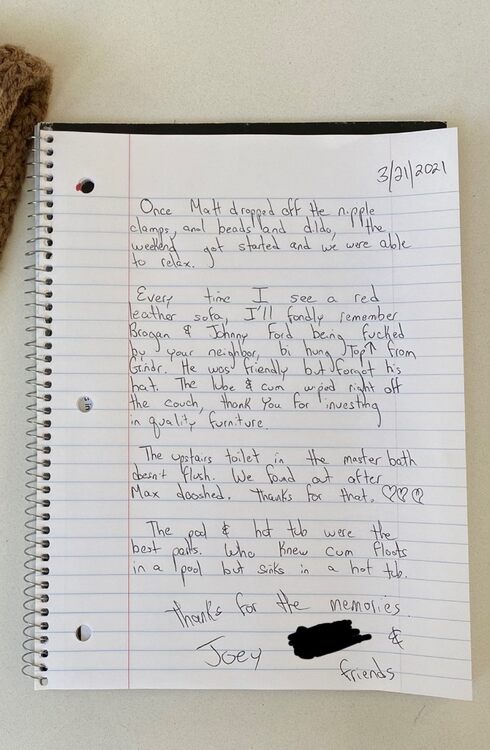 3/21/2021
Once Matt dropped off the nipple
clamps, anal beads and dildo, the
weekend got started and we were able
to relax.
Every time I see a red
leather sofa, I'll fondly remember
Brogan & Johnny Ford being fucked
by your neighbor, bi hung Top↑ from
Grindr. He was friendly but forgot his
hat. The lube & cum wiped right off
the couch, thank you for investing
in quality furniture.
The upstairs toilet in the master bath
doesn't flush. We found out after
Max dooshed. Thanks for that. ♡♡♡
The pool & hot tub were the
best parts. Who knew cum floats
in a pool but sinks in a hot tub.
Thanks for the memories.
Joey &
friends